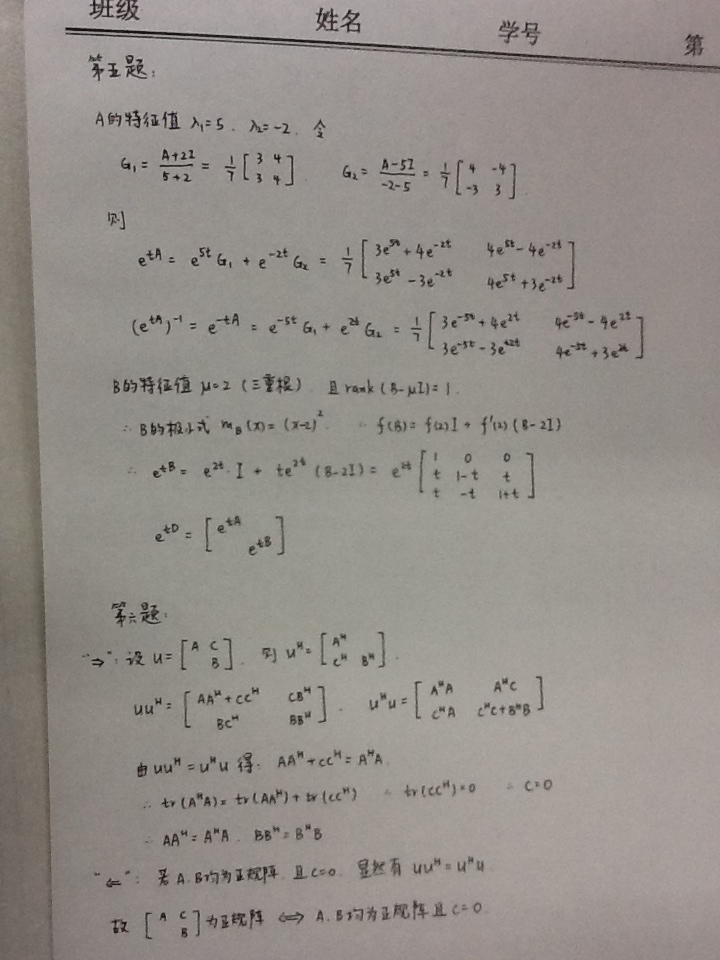 班级 姓名 学号 第
第五题:
A的特征值 λ₁=5 , λ₂=-2 , 令
G₁ = (A+2I)/(5+2) = 1/7 [3 4; 3 4] G₂ = (A-5I)/(-2-5) = 1/7 [4 -4; -3 3]
则
e^{tA} = e^{5t} G₁ + e^{-2t} G₂ = 1/7 [3e^{5t}+4e^{-2t} 4e^{5t}-4e^{-2t}; 3e^{5t}-3e^{-2t} 4e^{5t}+3e^{-2t}]
(e^{tA})^{-1} = e^{-tA} = e^{-5t} G₁ + e^{2t} G₂ = 1/7 [3e^{-5t}+4e^{2t} 4e^{-5t}-4e^{2t}; 3e^{-5t}-3e^{+2t} 4e^{-5t}+3e^{2t}]
B的特征值 μ=2 (三重根) 且 rank(B-μI)=1.
∴ B的极小式 m_B(x)=(x-2)². ∴ f(B)= f(2)I + f'(2)(B-2I)
∴ e^{tB} = e^{2t}·I + te^{2t}(B-2I) = e^{2t} [1 0 0; t 1-t t; t -t 1+t]
e^{tD} = [e^{tA} ; e^{tB}]
第六题:
"⇒": 设 U=[A C; B] , 则 U^H=[A^H ; C^H B^H] .
UU^H = [AA^H+CC^H CB^H; BC^H BB^H] , U^HU = [A^HA A^HC; C^HA C^HC+B^HB]
由 UU^H = U^HU 得: AA^H+CC^H = A^HA.
∴ tr(A^HA)= tr(AA^H)+tr(CC^H) ∴ tr(CC^H)=0 ∴ C=0
∴ AA^H = A^HA . BB^H = B^HB
"⇐": 若 A.B均为正规阵. 且 C=0. 显然有 UU^H = U^HU.
故 [A C; B] 为正规阵 ⟺ A.B均为正规阵且 C=0.